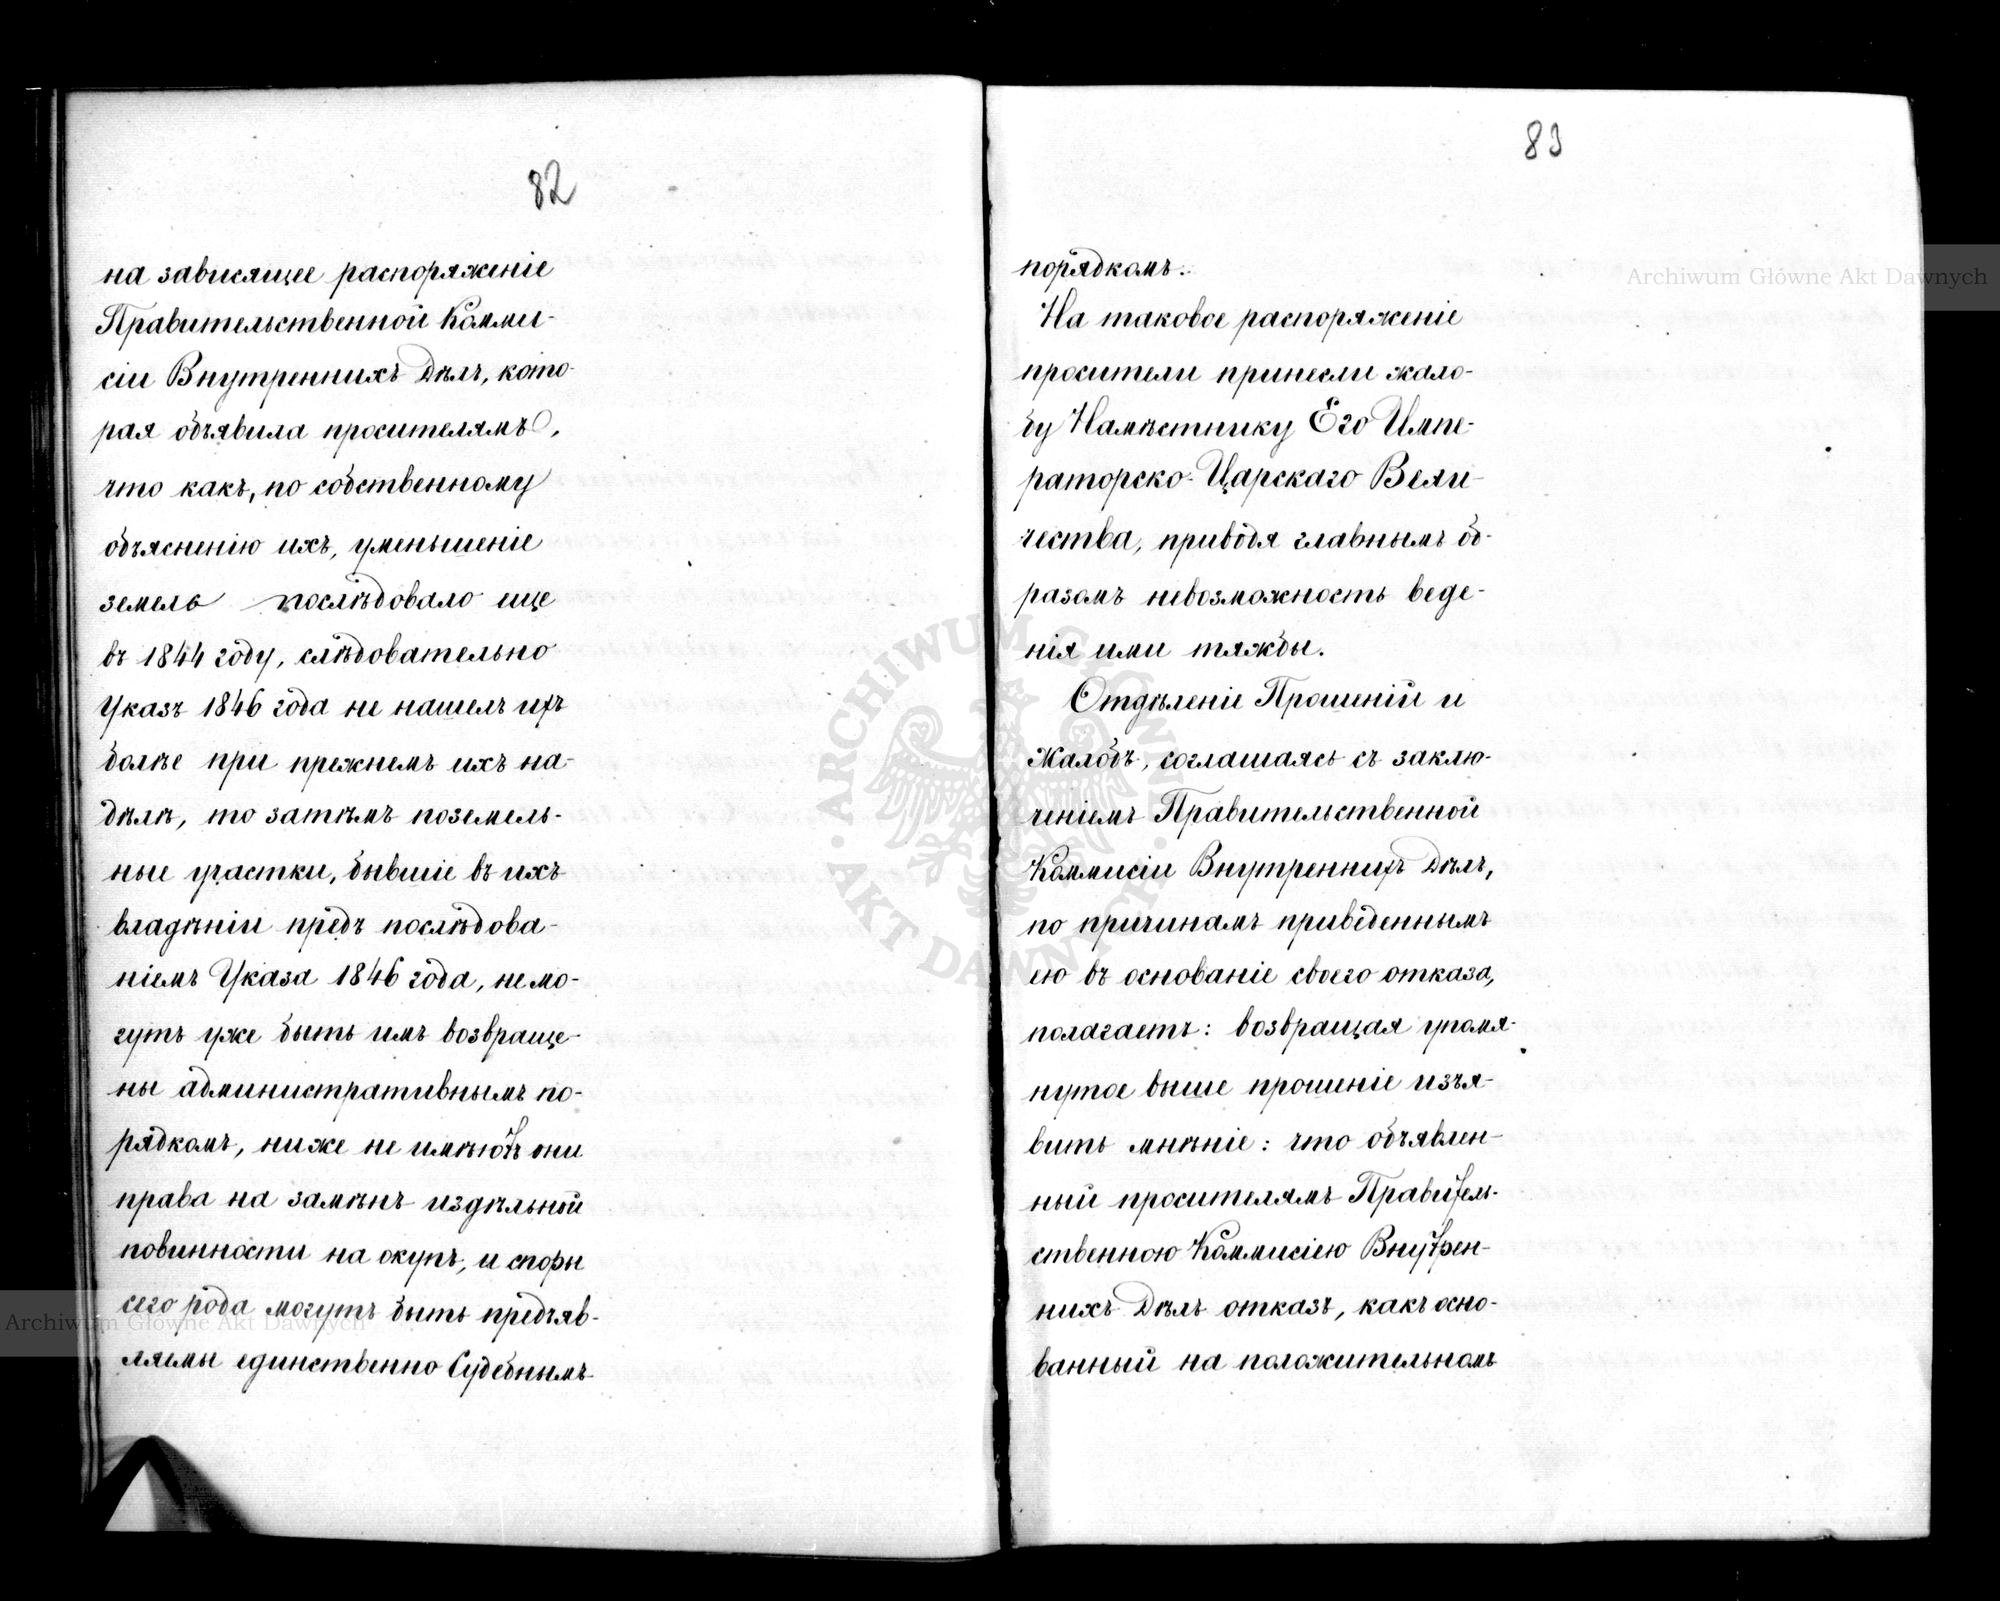 82
на зависящее распоряженіе
Правительственной Комми-
сіи Внутреннихъ Дѣлъ, кото-
рая объявила просителямъ,
что какъ, по собственному
объясненію ихъ, уменьшеніе
земель послѣдовало еще
въ 1844 году, слѣдовательно
Указъ 1846 года не нашелъ ихъ
болѣе при прежнемъ ихъ на-
дѣлѣ, то затѣмъ поземель-
ные участки, бывшіе въ ихъ
владѣніи предъ послѣдова-
ніемъ Указа 1846 года, не мо-
гутъ уже быть имъ возвраще-
ны административнымъ по-
рядкомъ, ниже не имѣютъ они
права на замѣнъ издѣльной
повинности на окупъ, и споры
сего рода могутъ быть предъяв-
ляемы единственно Судебнымъ
83
порядкомъ.
На таковое распоряженіе
просители принесли жало-
бу Намѣстнику Его Импе-
раторско-Царскаго Вели-
чества, приводя главнымъ об-
разомъ невозможность веде-
нія ими тяжбы.
Отдѣленіе Прошеній и
Жалобъ, соглашаясь съ заклю-
ченіемъ Правительственной
Коммисіи Внутреннихъ Дѣлъ,
по причинамъ приведеннымъ
ею въ основаніе своего отказа,
полагаетъ: возвращая упомя-
нутое выше прошеніе изъя-
вить мнѣніе: что объявлен-
ный просителямъ Правитель-
ственною Коммисіею Внутрен-
нихъ Дѣлъ отказъ, какъ осно-
ванный на положительномъ
Archiwum Główne Akt Dawnych
ARCHIWUM GŁÓWNE · AKT DAWNYCH ·
Archiwum Główne Akt Dawnych